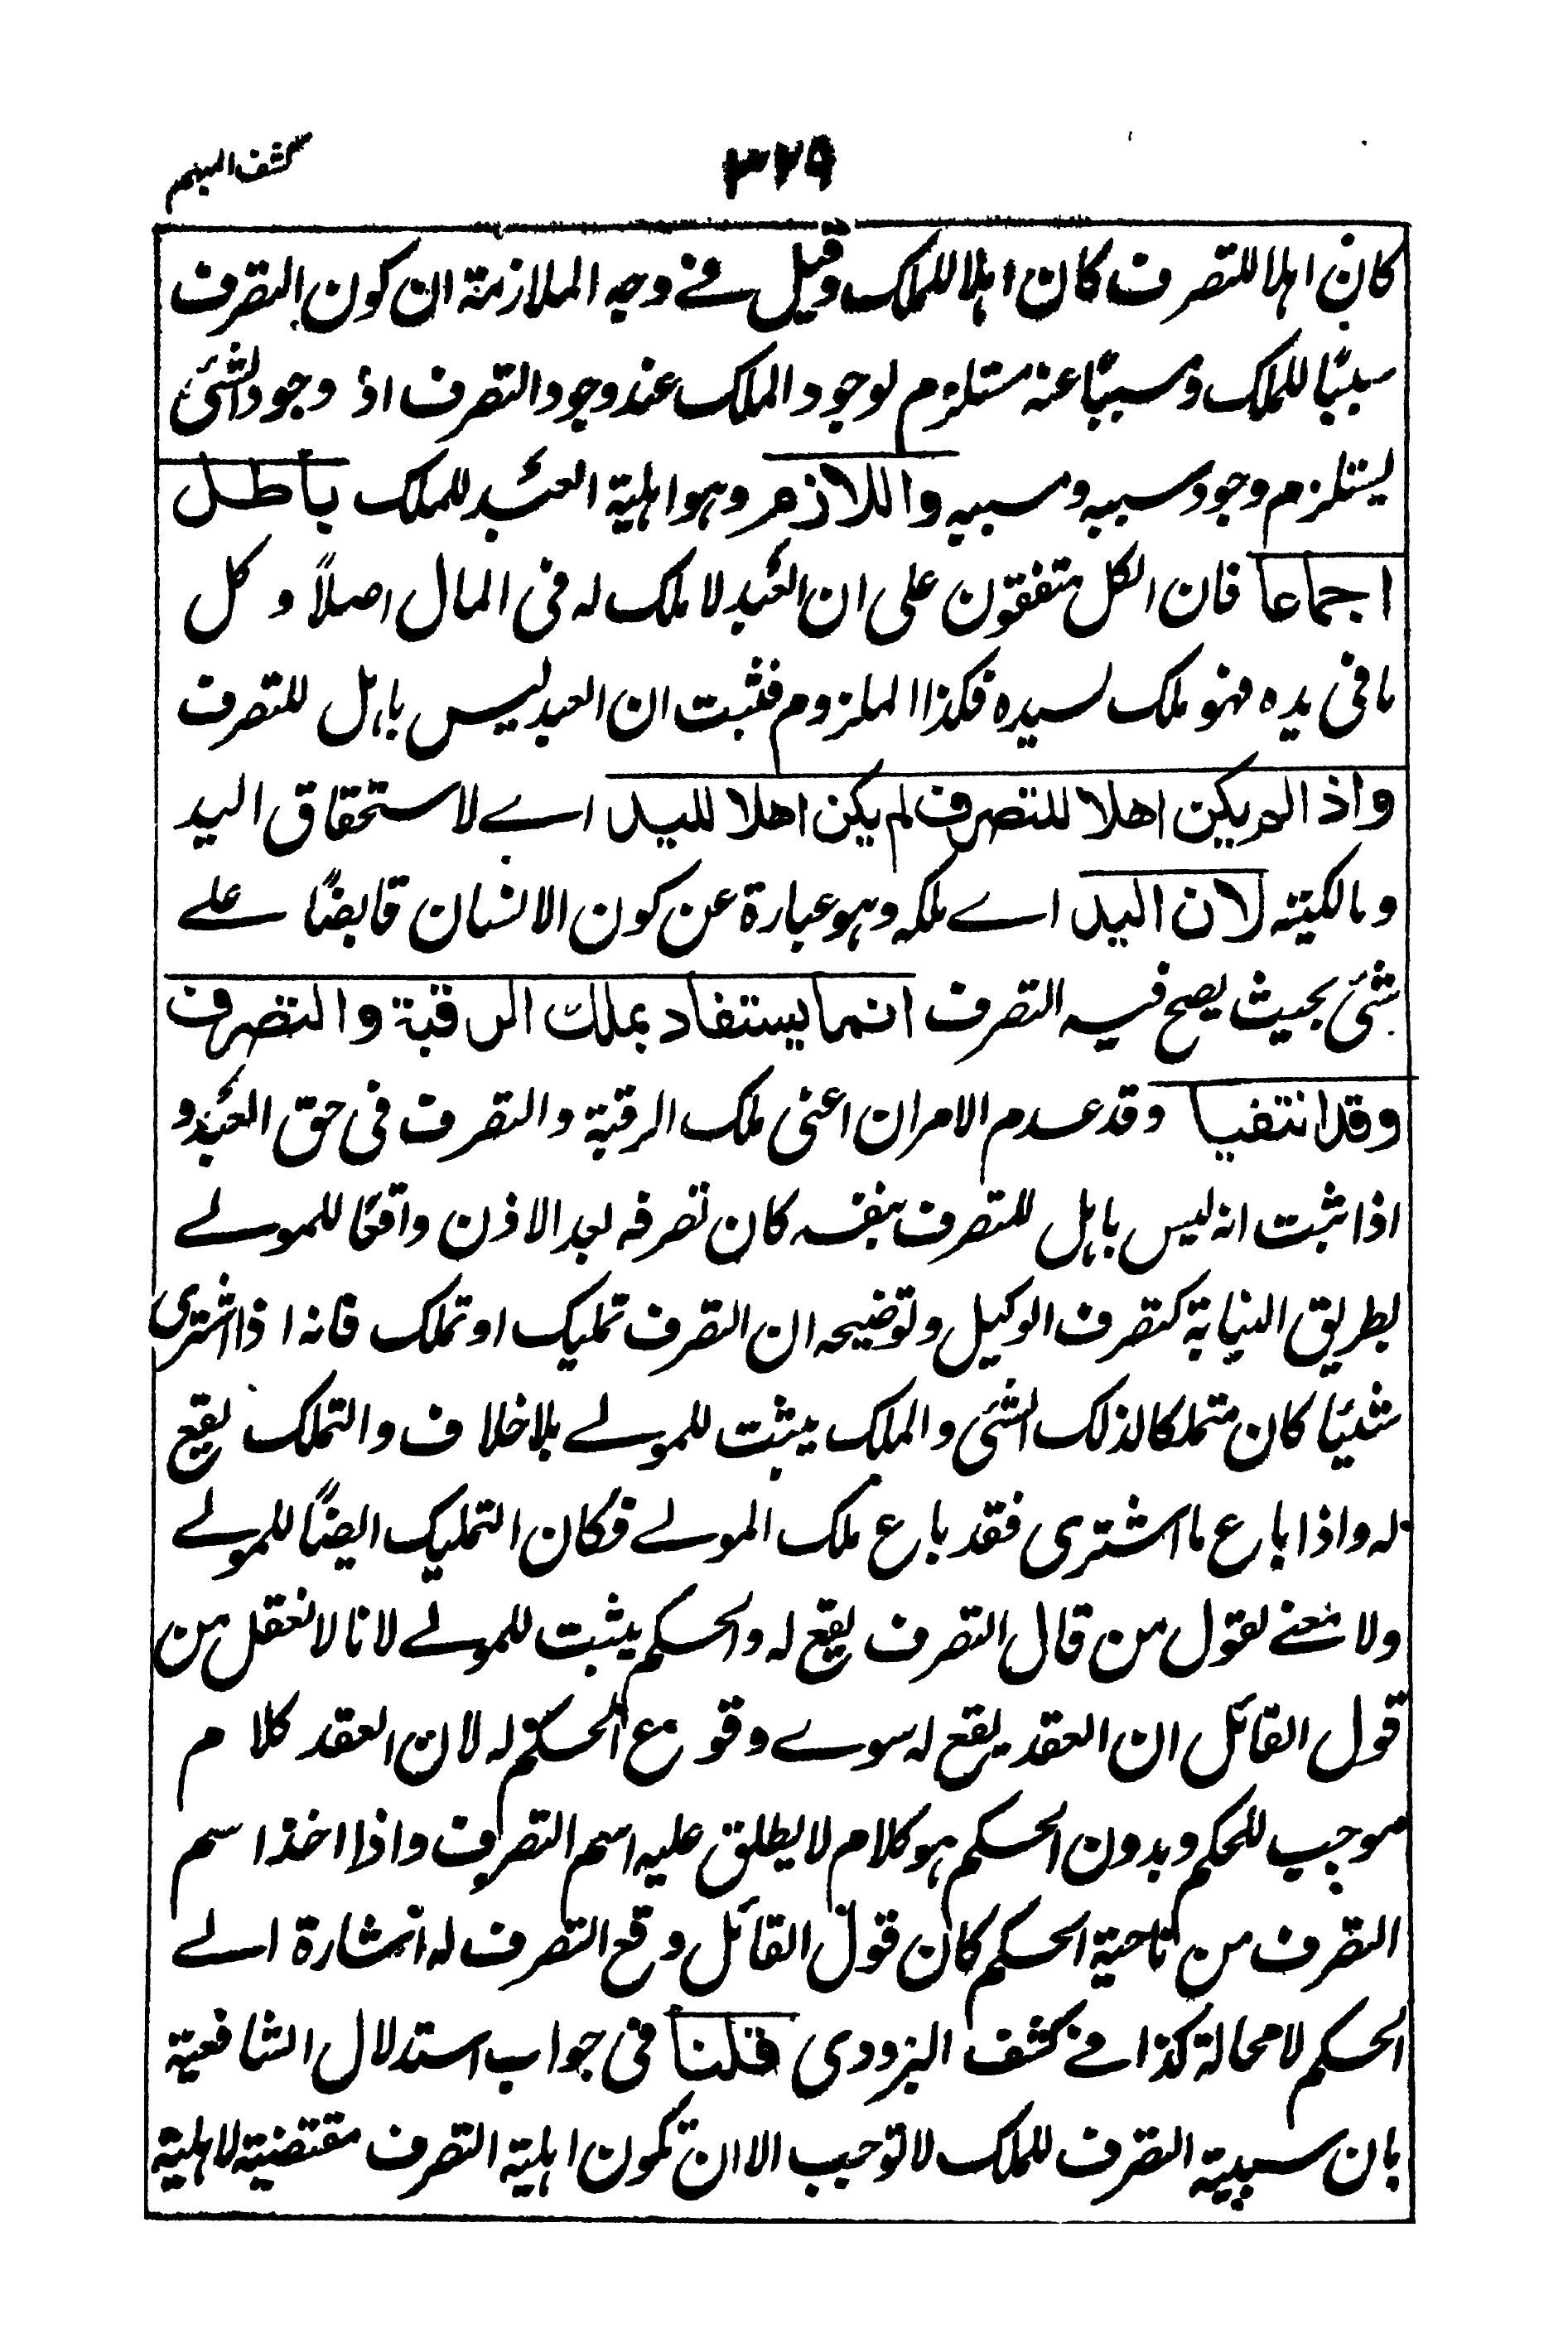 كشف المبهم
٣٢٩
كان اهلا للتصرف كان اهلا للملك وقيل في وجه الملازمة ان كون التصرف
سببًا للملك ومسببًا عنه مستلزم لوجود الملك عند وجود التصرف اذ وجود الشئ
يستلزم وجود سببه ومسببه واللازم وهو اهلية العبد للملك باطل
اجماعا فان الكل متفقون على ان العبد لا ملك له فى المال اصلاً و كل
ما فى يده فهو ملك لسيده فكذا الملزوم فثبت ان العبد ليس باهل للتصرف
واذا لم يكن اهلا للتصرف لم يكن اهلا لليد اے لاستحقاق اليد
ومالكيته لان اليد اے ملكه وهو عبارة عن كون الانسان قابضًا علے
شئ بحيث يصح فيه التصرف انما يستفاد بملك الرقبة والتصرف
وقد انتفيا وقد عدم الامران اعنى ملك الرقبة والتصرف فى حق العبد و
اذا ثبت انه ليس باهل للتصرف بنفسه كان تصرفه بعد الاذن واقعًا للمولے
بطريق النيابة كتصرف الوكيل وتوضيحه ان التصرف تمليك او تملك فانه اذا اشترى
شيئًا كان متملكا لذلك الشئ والملك يثبت للمولے بلا خلاف والتملك يقع
له واذا باع ما اشترى فقد باع ملك المولے فكان التمليك ايضًا للمولے
ولا معنے لقول من قال التصرف يقع له والحكم يثبت للمولے لانا لا نعقل من
قول القائل ان العقد يقع له سوے وقوع الحكم له لان العقد كلام
موجب للحكم وبدون الحكم هو كلام لا يطلق عليه اسم التصرف واذا اخذ اسم
التصرف من ناحية الحكم كان قول القائل وقع التصرف له اشارة الے
الحكم لا محالة كذا فے كشف البزودى قلنا فى جواب استدلال الشافعية
بان سببية التصرف للملك لا توجب الا ان تكون اهلية التصرف مقتضية لاهلية